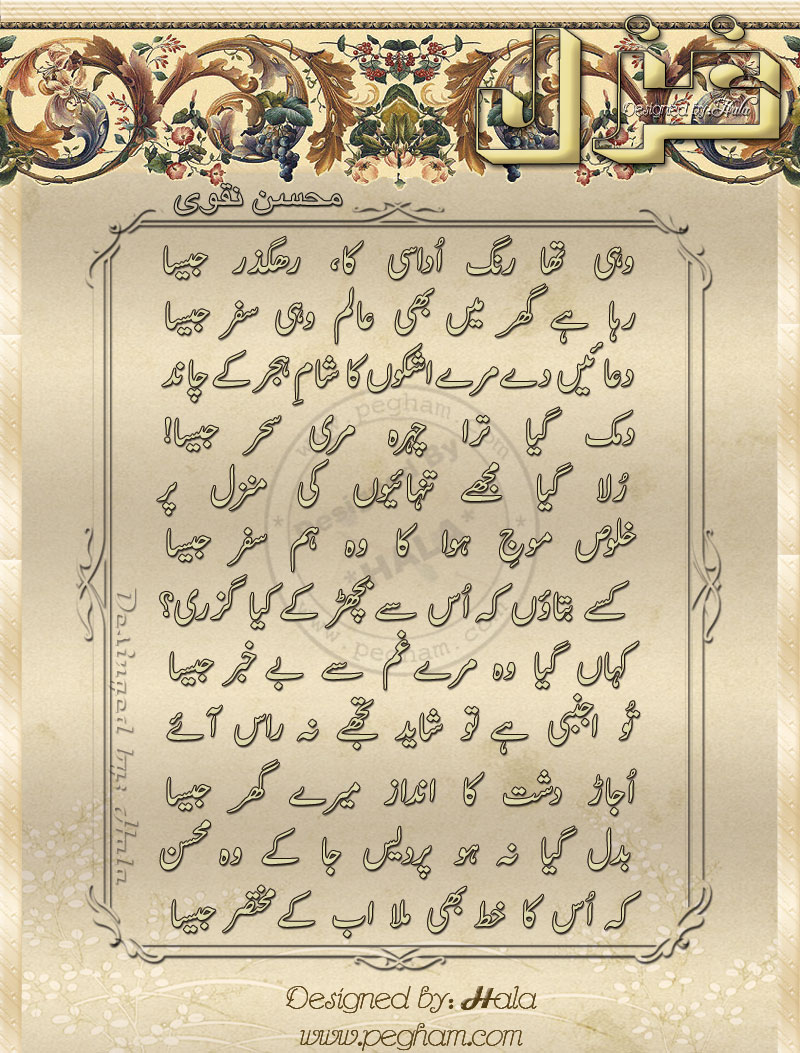 غزل
Designed by: Hala
محسن نقوی
وہی تھا رنگ اُداسی کا، رھگذر جیسا
رہا ہے گھر میں بھی عالم وہی سفر جیسا
دعائیں دے مرے اشکوں کا شامِ ہجر کے چاند
دمک گیا ترا چہرہ مری سحر جیسا!
رُلا گیا مجھے تنہائیوں کی منزل پر
خلوص موجِ ہوا کا وہ ہم سفر جیسا
کسے بتاؤں کہ اُس سے بچھڑ کے کیا گزری؟
کہاں گیا وہ مرے غم سے بے خبر جیسا
تُو اجنبی ہے تو شاید تجھے نہ راس آئے
اُجاڑ دشت کا انداز میرے گھر جیسا
بدل گیا نہ ہو پردیس جا کے وہ محسن
کہ اُس کا خط بھی ملا اب کے مختصر جیسا
www.pegham.com
Designed By
*HALA*
www.pegham.com
Desinged by: Hala
Designed by: Hala
www.pegham.com